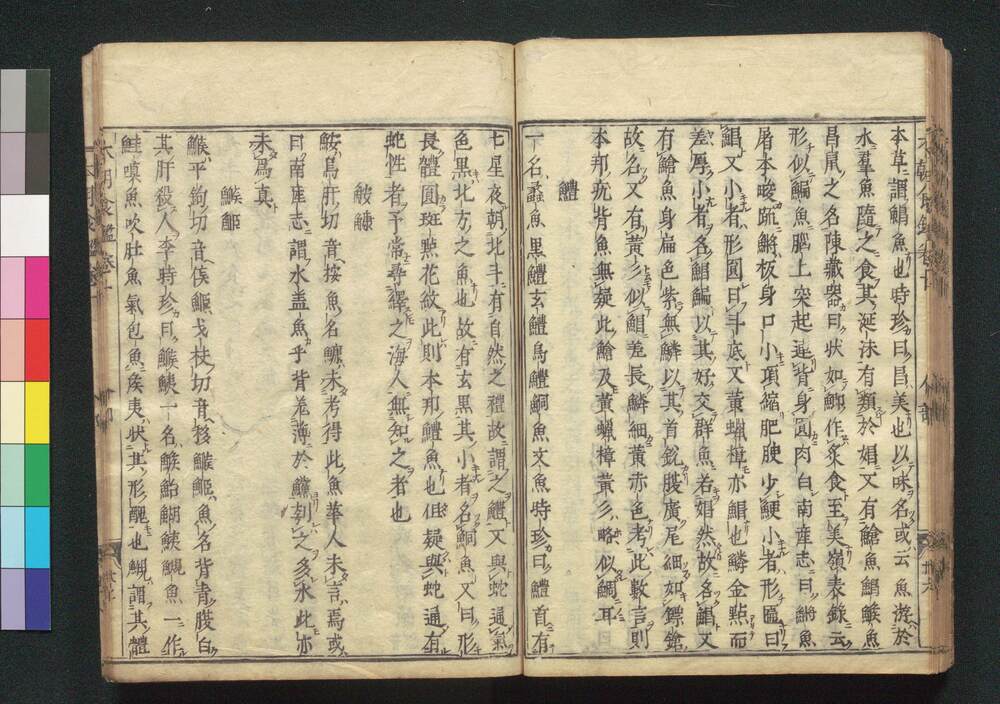 本草謂鯧魚也時珍曰昌美也以味名或云魚游於
水羣魚隨之食其涎沫有類於娼又有鎗魚鯧鯸魚
昌鼠之名陳藏器曰状如鯽作炙食至美嶺表録云
形似鯿魚腦上突起連背身圓肉白南産志曰鱂魚
屠本畯疏鱂板身口小項縮肥腴少鯁小者形匾曰
鯧又小者形圓曰斗底又黄蠟樟亦鯧也鱗金點而
差厚小者名鯧鯿以其好交群魚若娼然故名鯧又
有鎗魚身扁色紫無鱗以其首鋭腹廣尾細如鏢鎗
故名又有黄彡似鯧差長鱗細黄赤色考此數言則
本邦疣背魚無疑此鎗及黄蠟樟黄彡略似鯛耳
鱧
一名蠡魚黒鱧玄鱧烏鱧鮦魚文魚時珍曰鱧首有
七星夜朝北斗有自然之禮故謂之鱧又與蛇通氣
色黒北方之魚也故有玄黒其小者名鮦魚又曰形
長體圓斑點花紋此則本邦鱧魚也但疑與蛇通有
蛇性者予常尋繹之海人無知之者也
鮟鱇
鮟烏肝切音按魚名鱇未考得此魚華人未言焉或
曰南産志謂水盖魚乎背卷薄於鱶刳之多水此亦
未爲真
鯸鮔
鯸平鉤切音侯鮔戈枝切音移鯸鮔魚名背青腹白
其肝殺人李時珍曰鯸鮧一名鯸鮐鰗鮧䲅魚一作
鮭嗔魚吹肚魚氣包魚侯夷状其形醜也鰗謂其體